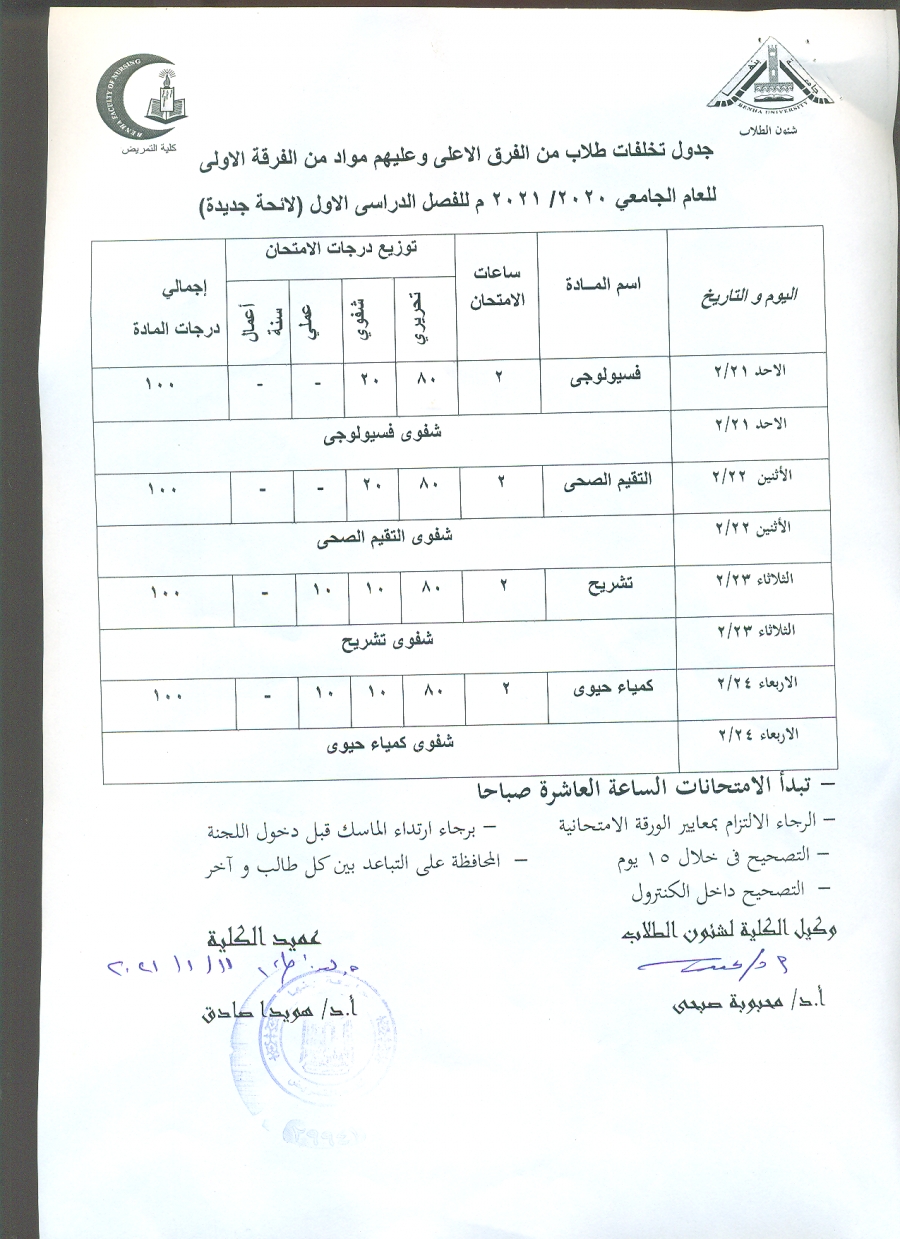 BENHA FACULTY OF NURSING
كلية التمريض
BENHA UNIVERSITY
شئون الطلاب
جدول تخلفات طلاب من الفرق الاعلى وعليهم مواد من الفرقة الاولى
للعام الجامعي ٢٠٢٠/ ٢٠٢١ م للفصل الدراسى الاول (لائحة جديدة)
اليوم و التاريخ | اسم المــادة | ساعات الامتحان | توزيع درجات الامتحان | إجمالي درجات المادة
تحريري | شفوي | عملي | أعمال سنة
الاحد ٢/٢١ | فسيولوجى | ٢ | ٨٠ | ٢٠ | - | - | ١٠٠
الاحد ٢/٢١ | شفوى فسيولوجى
الأثنين ٢/٢٢ | التقيم الصحى | ٢ | ٨٠ | ٢٠ | - | - | ١٠٠
الأثنين ٢/٢٢ | شفوى التقيم الصحى
الثلاثاء ٢/٢٣ | تشريح | ٢ | ٨٠ | ١٠ | ١٠ | - | ١٠٠
الثلاثاء ٢/٢٣ | شفوى تشريح
الاربعاء ٢/٢٤ | كمياء حيوى | ٢ | ٨٠ | ١٠ | ١٠ | - | ١٠٠
الاربعاء ٢/٢٤ | شفوى كمياء حيوى
– تبدأ الامتحانات الساعة العاشرة صباحا
– الرجاء الالتزام بمعايير الورقة الامتحانية – برجاء ارتداء الماسك قبل دخول اللجنة
– التصحيح فى خلال ١٥ يوم – المحافظة على التباعد بين كل طالب و آخر
– التصحيح داخل الكنترول
وكيل الكلية لشئون الطلاب عميد الكلية
أ.د/ محبوبة صبحى أ.د/ هويدا صادق